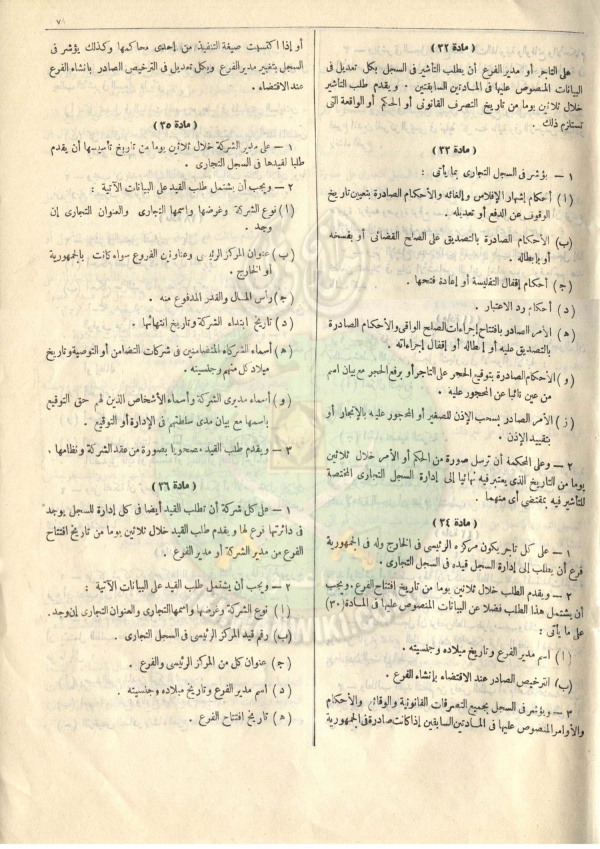 ٧
( مادة ٣٢ )
على التاجر أو مدير الفرع أن يطلب التأشير فى السجل بكل تعديل فى
البيانات المنصوص عليها فى المادتين السابقتين . ويقدم طلب التأشير
خلال ثلاثين يوما من تاريخ التصرف القانونى أو الحكم أو الواقعة التى
تستلزم ذلك .
( مادة ٣٣ )
١ – يؤشر فى السجل التجارى بما يأتى :
( أ ) أحكام إشهار الإفلاس وإلغائه والأحكام الصادرة بتعيين تاريخ
الوقوف عن الدفع أو تعديله .
(ب) الأحكام الصادرة بالتصديق على الصلح القضائى أو بفسخه
أو بإبطاله .
(ج) أحكام إقفال التفليسة أو إعادة فتحها .
( د ) أحكام رد الاعتبار .
(ه) الأمر الصادر بافتتاح إجراءات الصلح الواقى والأحكام الصادرة
بالتصديق عليه أو إبطاله أو إقفال إجراءاته .
( و ) الأحكام الصادرة بتوقيع الحجر على التاجر أو برفع الحجر مع بيان اسم
من عين نائبا عن المحجور عليه .
( ز ) الأمر الصادر بسحب الإذن للصغير أو المحجور عليه بالاتجار أو
بتقييد الإذن .
٢ – وعلى المحكمة أن ترسل صورة من الحكم أو الأمر خلال ثلاثين
يوما من التاريخ الذى يعتبر فيه نهائيا إلى إدارة السجل التجارى المختصة
للتأشير فيه بمقتضى أى منهما .
( مادة ٣٤ )
١ – على كل تاجر يكون مركزه الرئيسى فى الخارج وله فى الجمهورية
فرع أن يطلب إلى إدارة السجل قيده فى السجل التجارى .
٢ – ويقدم الطلب خلال ثلاثين يوما من تاريخ افتتاح الفرع. ويجب
أن يشتمل هذا الطلب فضلا عن البيانات المنصوص عليها فى المادة (٣٠)
على ما يأتى :
( أ ) اسم مدير الفرع وتاريخ ميلاده وجنسيته .
(ب) الترخيص الصادر عند الاقتضاء بإنشاء الفرع .
٣ – ويؤشر فى السجل بجميع التصرفات القانونية والوقائع والأحكام
والأوامر المنصوص عليها فى المادتين السابقتين إذا كانت صادرة فى الجمهورية
أو إذا اكتسبت صيغة التنفيذ من إحدى محاكمها وكذلك يؤشر فى
السجل بتغيير مدير الفرع وبكل تعديل فى الترخيص الصادر بانشاء الفرع
عند الاقتضاء .
( مادة ٣٥ )
١ – على مدير الشركة خلال ثلاثين يوما من تاريخ تأسيسها أن يقدم
طلبا لقيدها فى السجل التجارى .
٢ – ويجب أن يشتمل طلب القيد على البيانات الآتية :
( أ ) نوع الشركة وغرضها واسمها التجارى والعنوان التجارى إن
وجد .
(ب) عنوان المركز الرئيسى وعناوين الفروع سواء كانت بالجمهورية
أو الخارج .
(ج) رأس المال والقدر المدفوع منه .
( د ) تاريخ ابتداء الشركة وتاريخ انتهائها .
(ه) أسماء الشركاء المتضامنين فى شركات التضامن أو التوصية وتاريخ
ميلاد كل منهم وجنسيته .
( و ) أسماء مديرى الشركة وأسماء الأشخاص الذين لهم حق التوقيع
باسمها مع بيان مدى سلطتهم فى الإدارة أو التوقيع .
٣ – ويقدم طلب القيد مصحوبا بصورة من عقد الشركة ونظامها .
( مادة ٣٦ )
١ – على كل شركة أن تطلب القيد أيضا فى كل إدارة للسجل يوجد
فى دائرتها فرع لها ويقدم طلب القيد خلال ثلاثين يوما من تاريخ افتتاح
الفرع من مدير الشركة أو مدير الفرع .
٢ – ويجب أن يشتمل طلب القيد على البيانات الآتية :
( أ ) نوع الشركة وغرضها واسمها التجارى والعنوان التجارى إن وجد .
(ب) رقم قيد المركز الرئيسى فى السجل التجارى .
(ج) عنوان كل من المركز الرئيسى والفرع .
( د ) اسم مدير الفرع وتاريخ ميلاده وجنسيته .
(ه) تاريخ افتتاح الفرع .